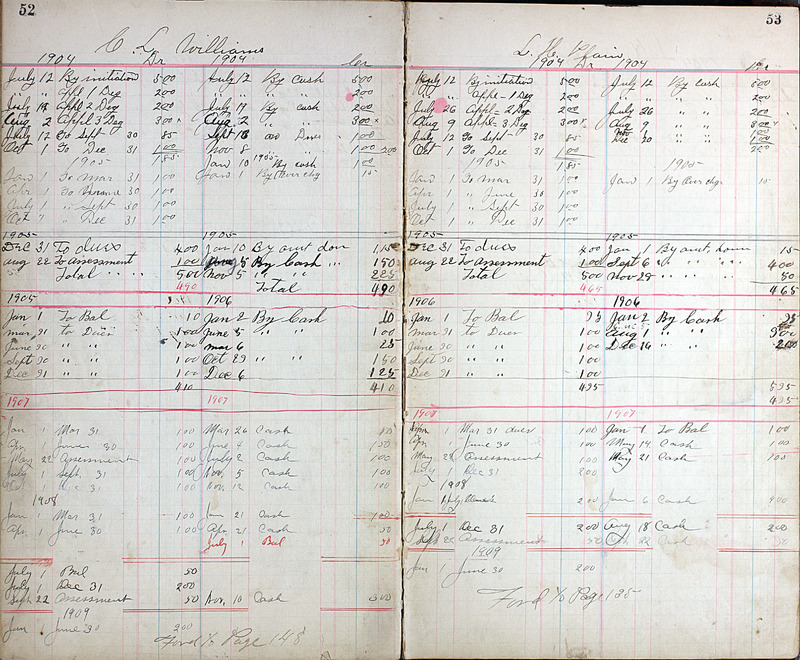 52
C L Williams
1904 Dr 1904 Cr
July 12 By initiation 500 July 12 By Cash 500
" " Appl 1 Deg 200 " " " " 200
July 18 Appl 2 Deg 200 July 19 By cash 200
Aug 2 Appl 3 Deg 300 x Aug 2 " " 300 x
July 12 To Sept 30 85 Sept 13 Dues 100
Oct 1 To Dec 31 100 Nov 8 100 200
1905 185 Jan 10 1905 By cash 100
Jan 1 To Mar 31 100 Jan 1 By Over chg 15
Apr 1 To June 30 100
July 1 " Sept 30 100
Oct " " Dec 31 100
1905 1905
Dec 31 To dues 400 Jan 10 By amt don 115
Aug 22 To assessment 100 5 By Cash " 150
Total 500 Nov 5 " " 225
490 Total 490
1905 1906
Jan 1 To Bal 10 Jan 2 By Cash 10
Mar 31 to Dues 100 June 5 " " 100
June 30 " " 100 mar 6 25
Sept 30 " " 100 Oct 29 " " 150
Dec 31 " " 100 Dec 6 125
410 410
1907 1907
Jan 1 Mar 31 100 Mar 26 Cash
Apr 1 June 30 100 June 4 Cash 150
May 22 Assessment 100 July 2 Cash 100
July 1 Sept 31 100 Nov. 5 Cash 100
1 Dec 31 100 Nov. 12 Cash 100
1908
Jan 1 Mar 31 100 Jan 21 Cash 100
Apr. 1 June 30 100 Apr. 21 Cash 50
July 1 Bal 50
July 1 Bal 50
July 1 Dec 31 200
Sept 22 Assessment 50 Nov. 10 Cash 300
1909
Jan 1 June 30 200
Ford to Page 148
53
L. H. Pfain
1904 Dr 1904
July 12 By initiation 500 July 12 By cash 500
" " Appl - 1 Deg 200 " " " " 200
July 26 Appl - 2 Deg 200 July 26 " " 200
Aug 9 Appl - 3 Deg 300 x Aug 9 " " 300 x
July 12 To Sept - 30 85 Nov 1 " " 100
Oct 1 To Dec 31 100 Dec 20 " " 100
1905 185 1905 200
Jan 1 To Mar 31 100 Jan 1 By Over chg 15
Apr 1 " June 30 100
July 1 " Sept 30 100
Oct 1 " Dec 31 100
1905 1905
Dec 31 To dues 400 Jan 1 By amt. down 15
Aug 22 To assessment 100 Sept 6 " " 400
Total 500 Nov 29 " " " " 50
465 465
1906 1906
Jan 1 To Bal 35 Jan 2 By Cash 35
Mar 31 to Dues 100 Aug " " 300
June 30 " " 100 Dec 16 " " 200
Sept 30 " " 100
Dec 31 " " 100
435 535
435
1907 1907
Jan 1 Mar 31 dues 100 Jan 1 To Bal 100
Apr 1 June 30 100 May 14 Cash 100
May 28 Assessment 100 May 21 Cash 100
July 1 Dec 31 200
1908
Jan 1 200 Jan 6 Cash 400
July 1 Dec 31 200 Aug 18 Cash 200
Sept 22 Assessment 50 22 Cash 50
1909
Jan 1 June 30 200
Ford to Page 125